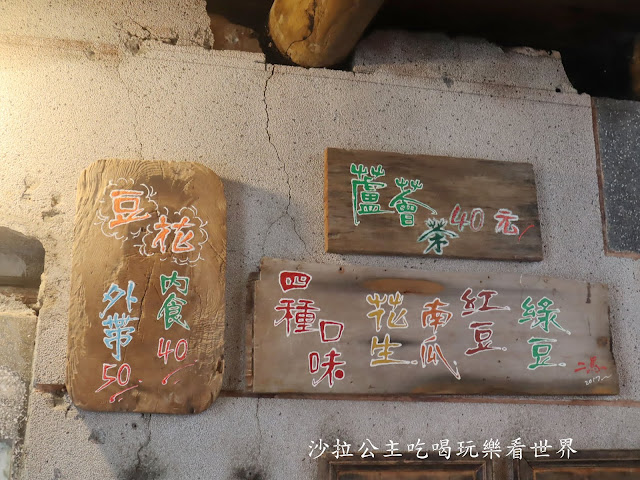 豆花
內食 40
外帶 50
蘆薈茶 40元
四種口味
花生. 南瓜. 紅豆. 綠豆
2017
沙拉公主吃喝玩樂看世界